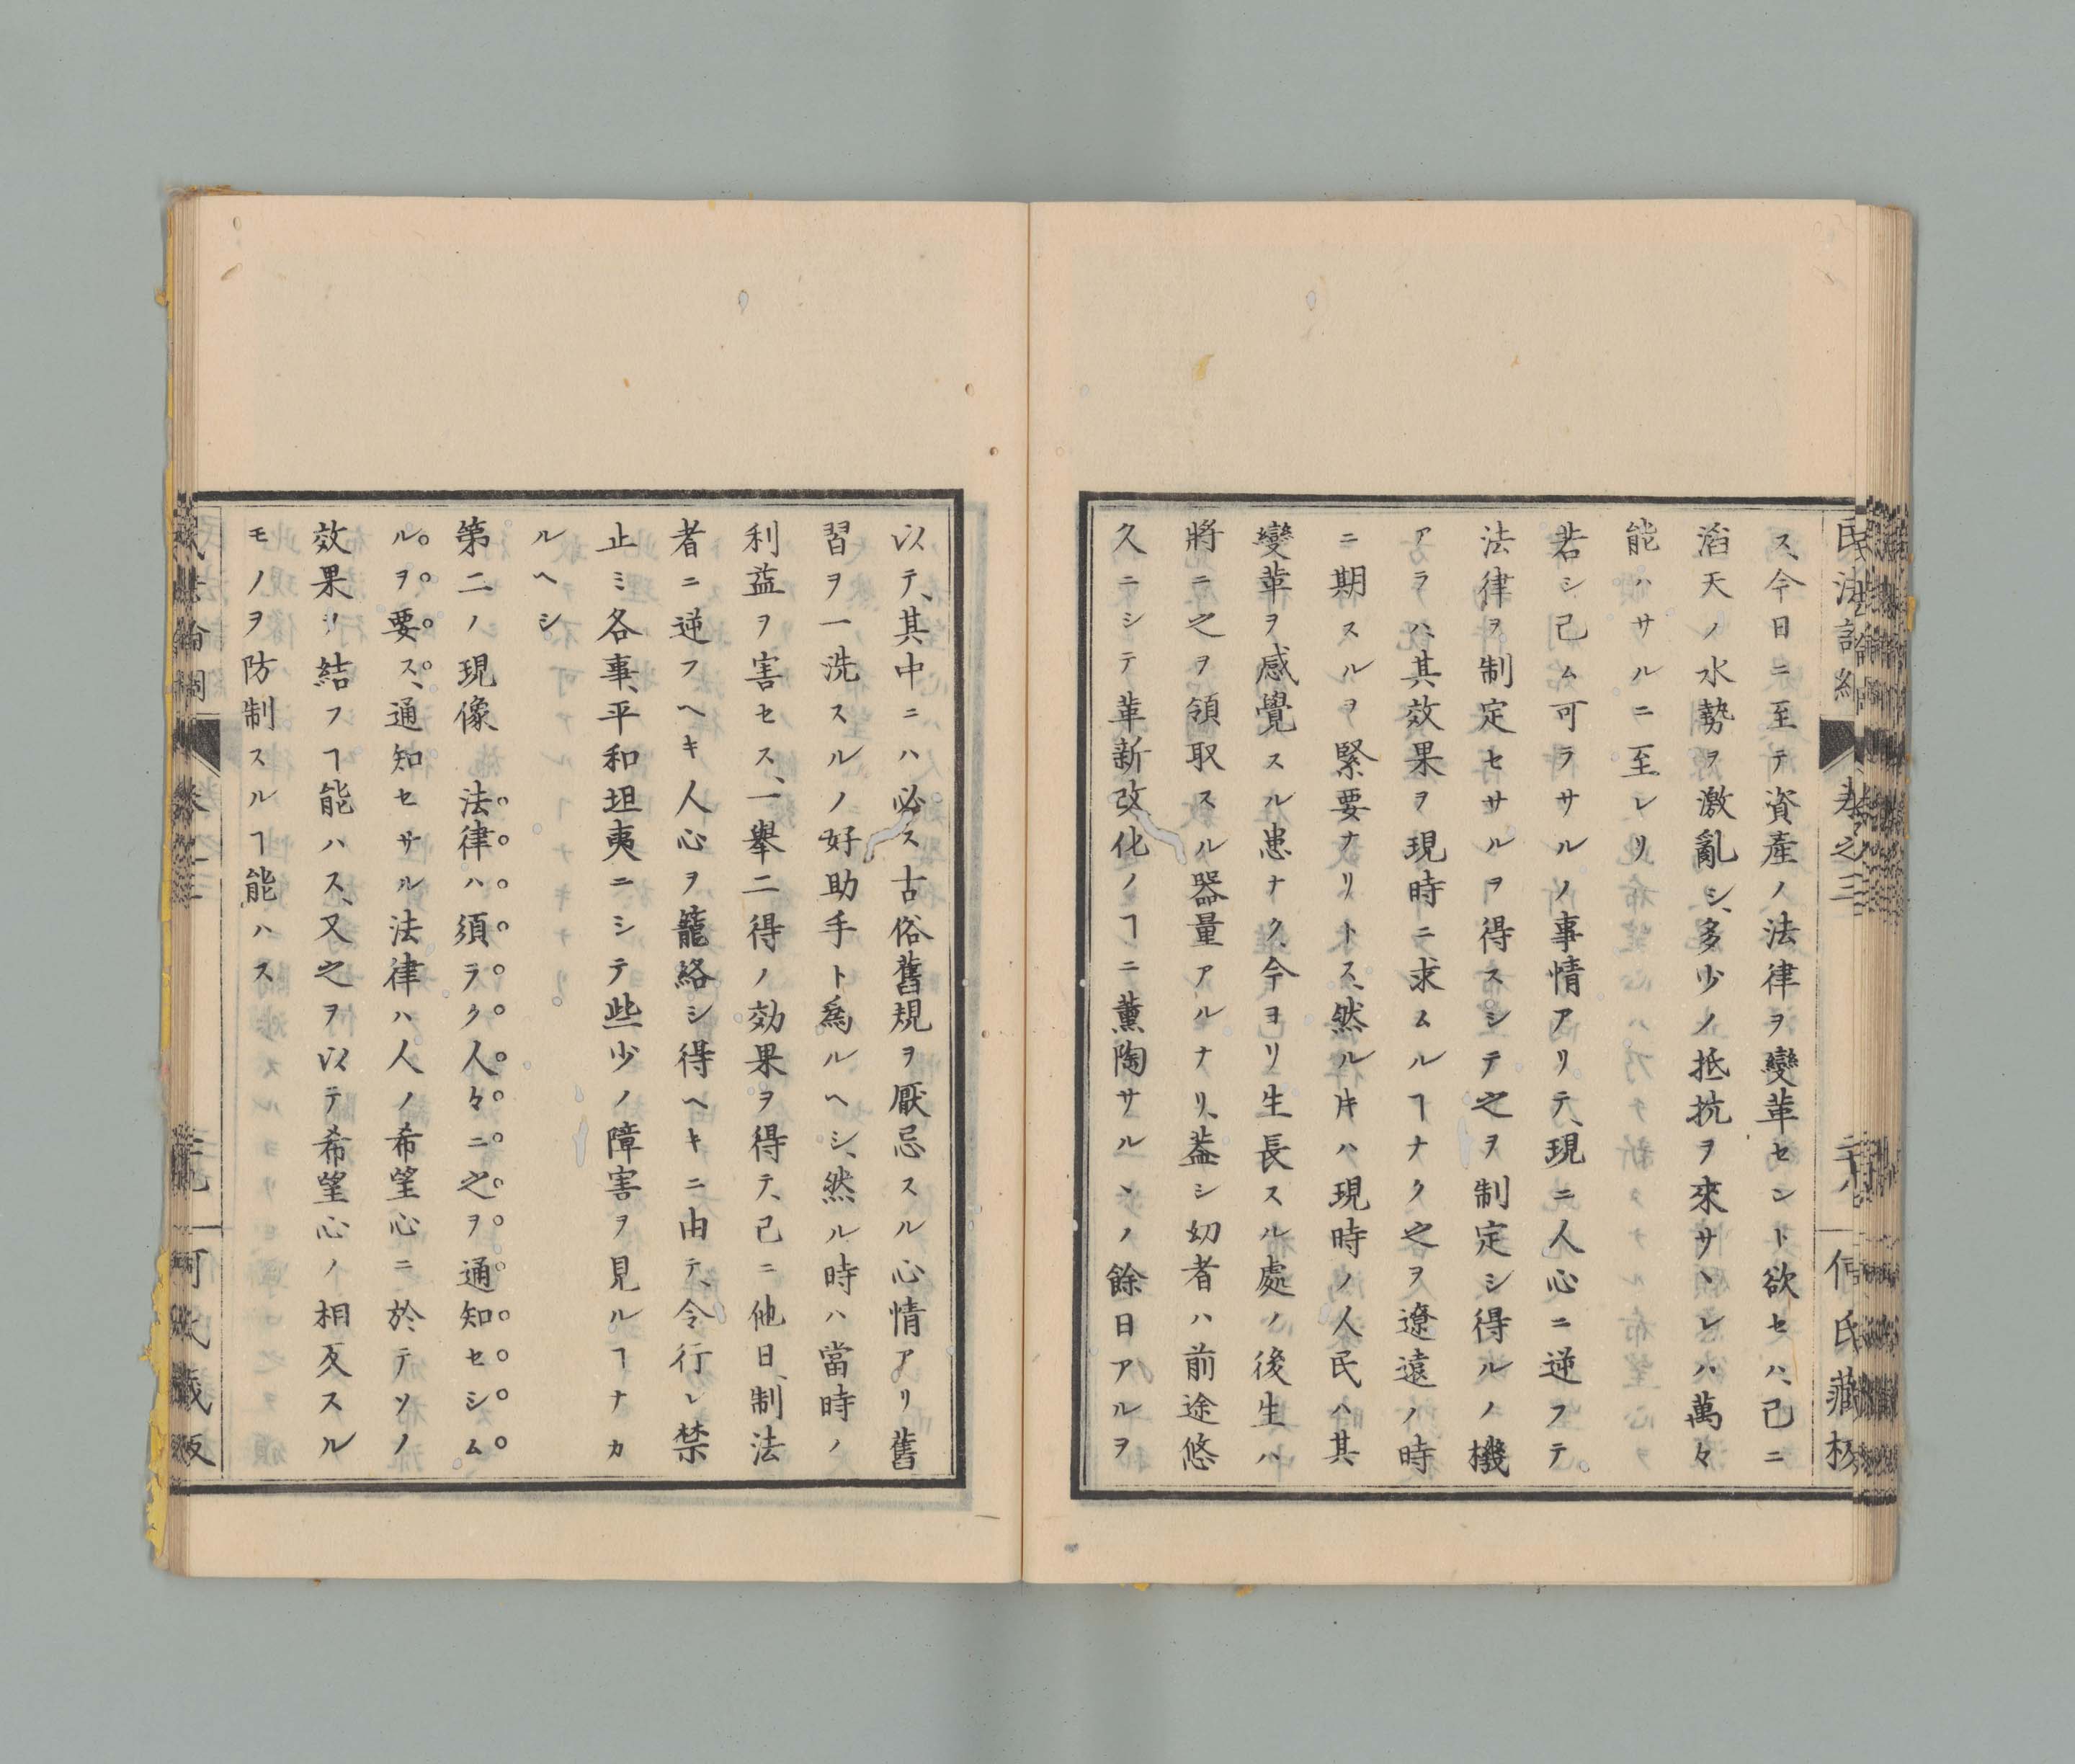 民法論綱 卷之三 二十八 何氏藏板
ス、今日ニ至テ資產ノ法律ヲ變革セント欲セハ、已ニ
滔天ノ水勢ヲ激亂シ、多少ノ抵抗ヲ來サヽレハ萬々
能ハサルニ至レリ
若シ已ム可ラサルノ事情アリテ、現ニ人心ニ逆フテ
法律ヲ制定セサルヲ得スシテ之ヲ制定シ得ルノ機
アラハ、其效果ヲ現時ニ求ムルヿナク之ヲ遼遠ノ時
ニ期スルヲ緊要ナリトス、然ル片ハ現時ノ人民ハ其
變革ヲ感覺スル患ナク、今ヨリ生長スル處ノ後生ハ
將ニ之ヲ領取スル器量アルナリ、蓋シ幼者ハ前途悠
久ニシテ革新改化ノヿニ薰陶サルヽノ餘日アルヲ
以テ、其中ニハ必ス古俗舊規ヲ厭忌スル心情アリ舊
習ヲ一洗スルノ好助手ト爲ルヘシ、然ル時ハ當時ノ
利益ヲ害セス、一擧二得ノ効果ヲ得テ、已ニ他日、制法
者ニ逆フヘキ人心ヲ籠絡シ得ヘキニ由テ、令行レ禁
止ミ各事、平和坦夷ニシテ些少ノ障害ヲ見ルヿナカ
ルヘシ
第二ノ現像　法律ハ須ラク人々ニ之ヲ通知セシム
ルヲ要ス、通知セサル法律ハ人ノ希望心ニ於テソノ
效果ヲ結フヿ能ハス、又之ヲ以テ希望心ノ相反スル
モノヲ防制スルヿ能ハス
民法論綱 卷之三 二十九 何氏藏板